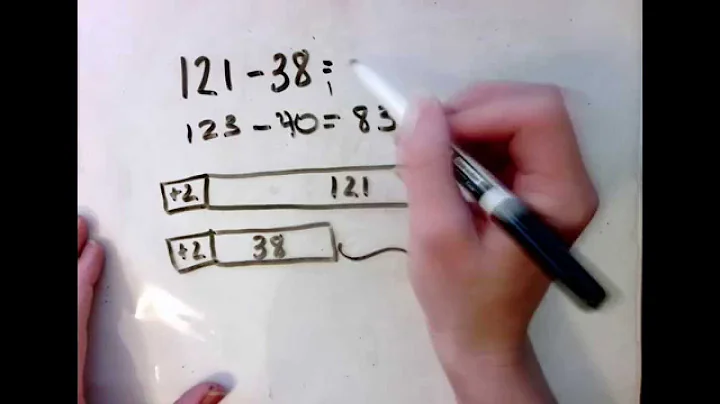 121-38=
123-40=83
+2 121
+2 38